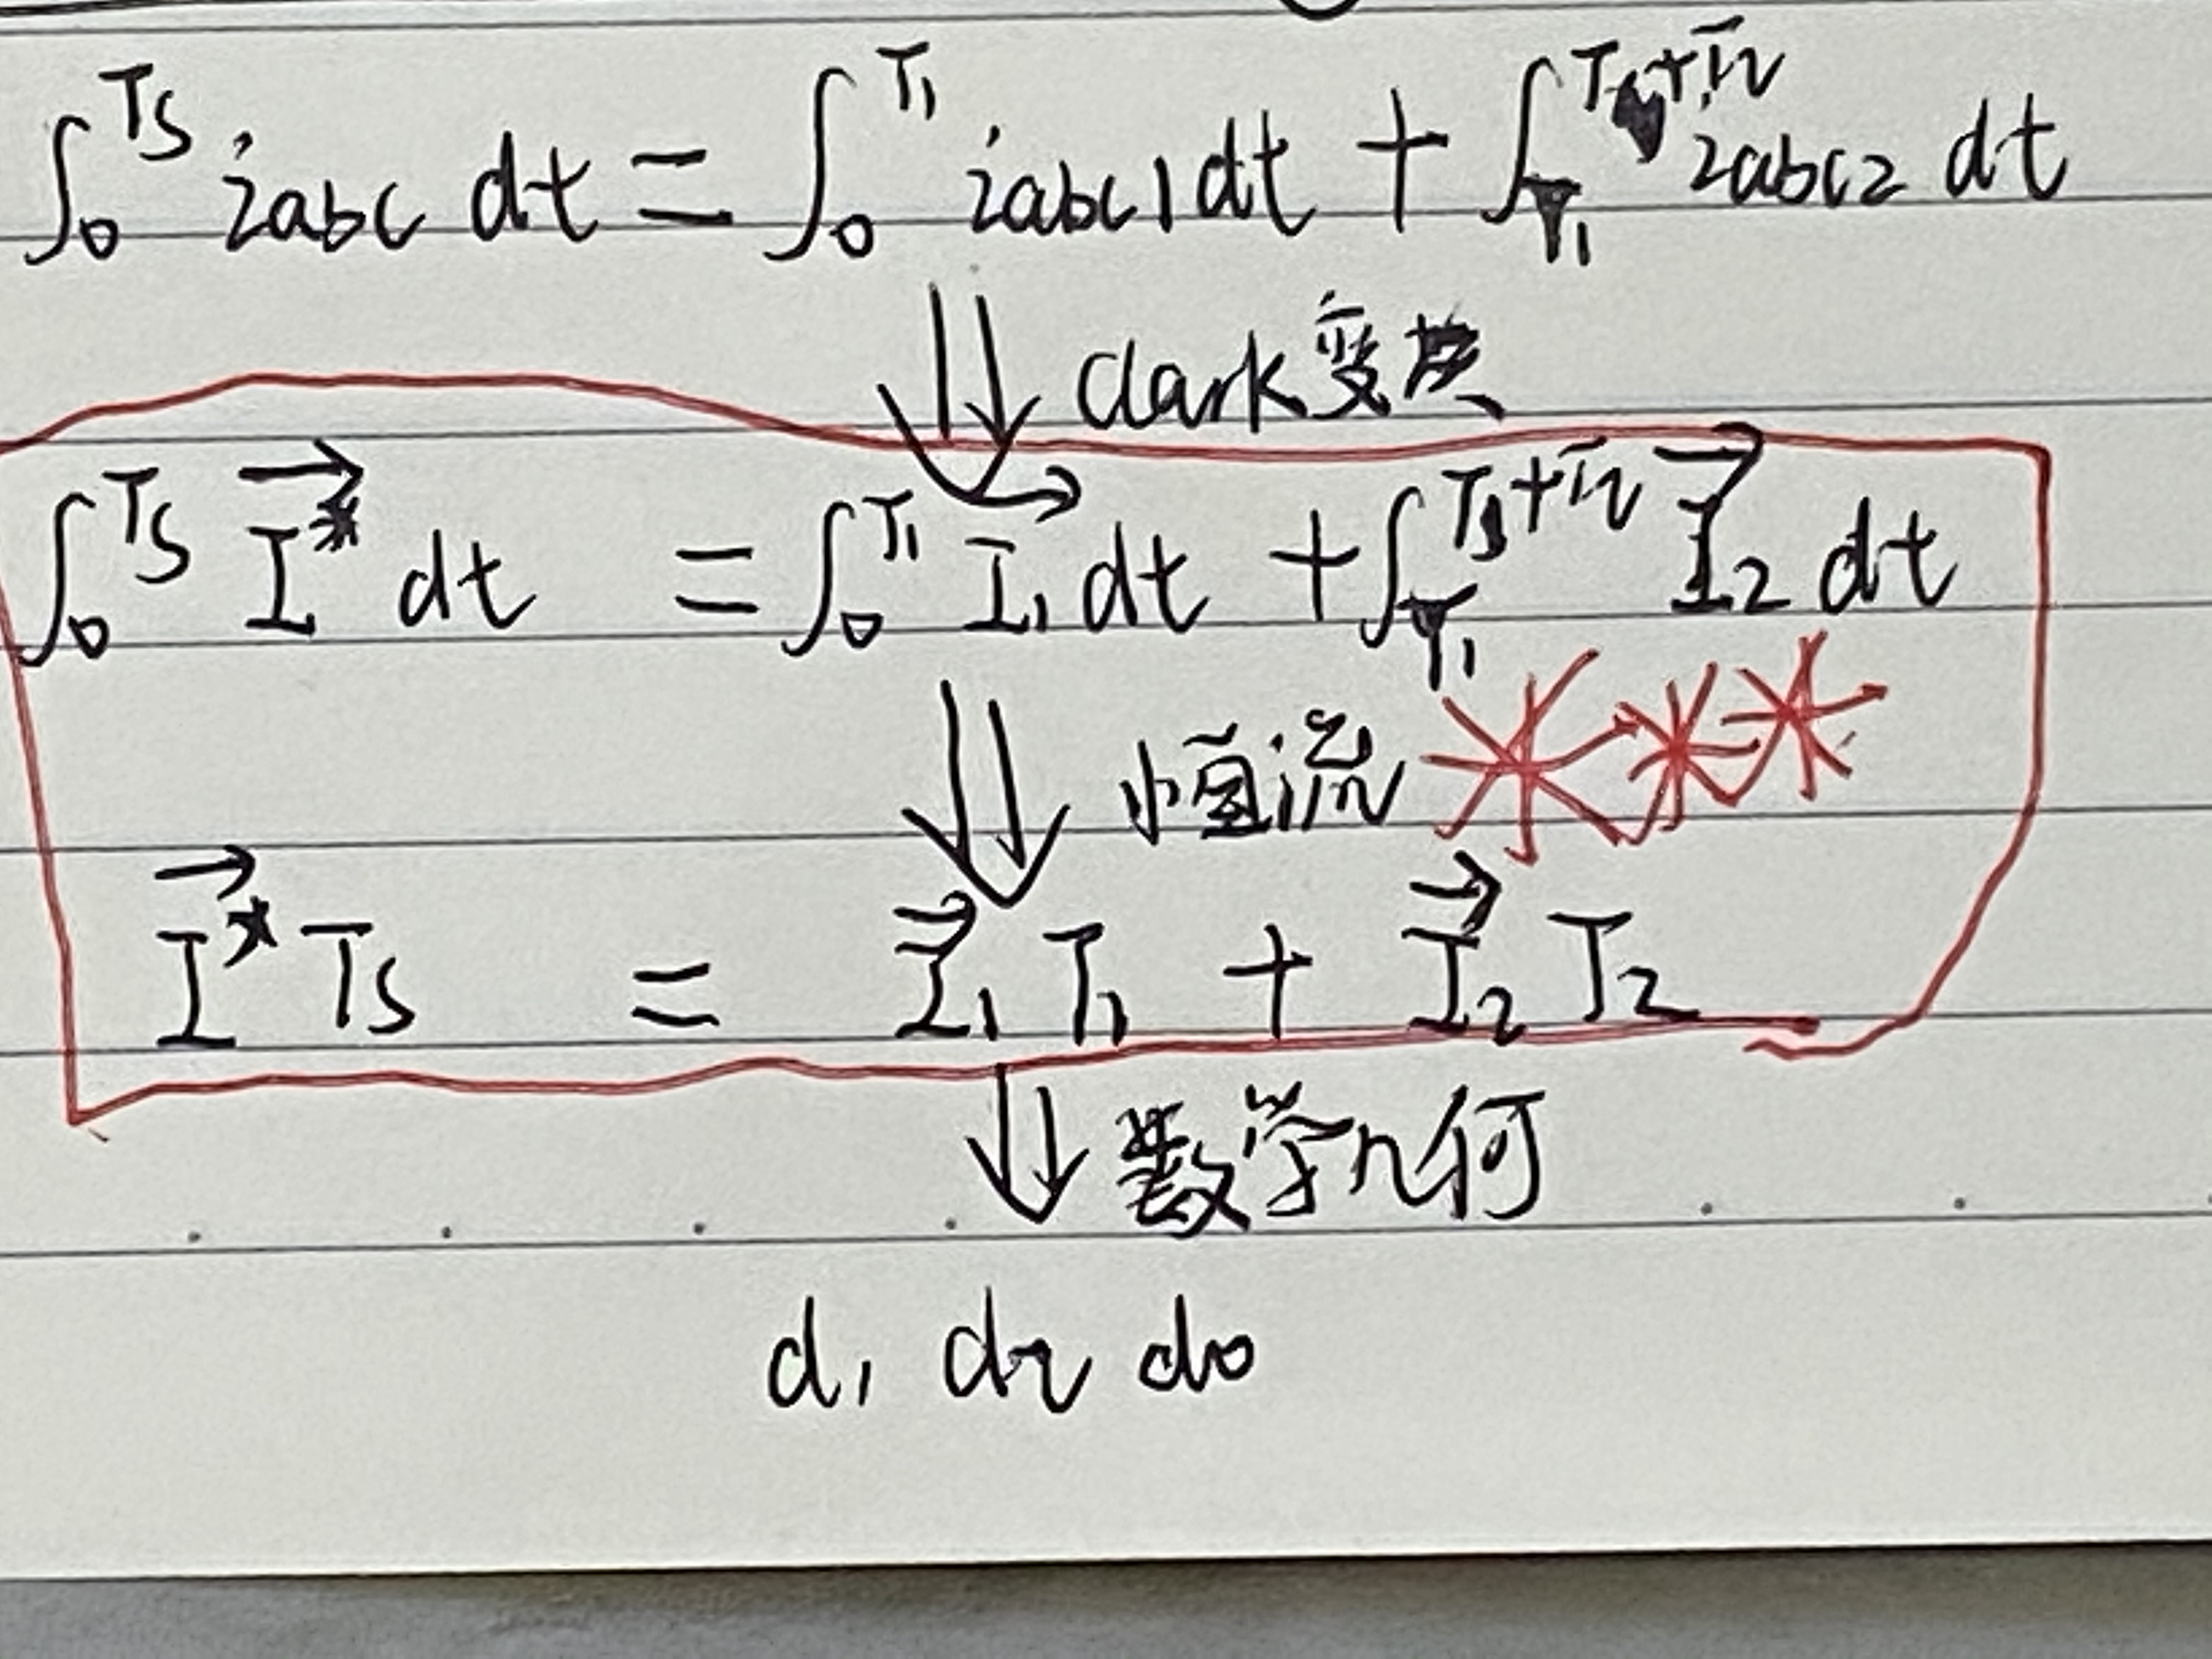 ∫₀^Ts iabc dt = ∫₀^T₁ iabc1 dt + ∫_T₁^T₁+T₂ iabc2 dt
⇓ clark变换
∫₀^Ts I⃗* dt = ∫₀^T₁ I⃗₁ dt + ∫_T₁^T₁+T₂ I⃗₂ dt
⇓ 恒流 ***
I⃗* Ts = I⃗₁ T₁ + I⃗₂ T₂
⇓ 数学几何
d₁ d₂ d₀